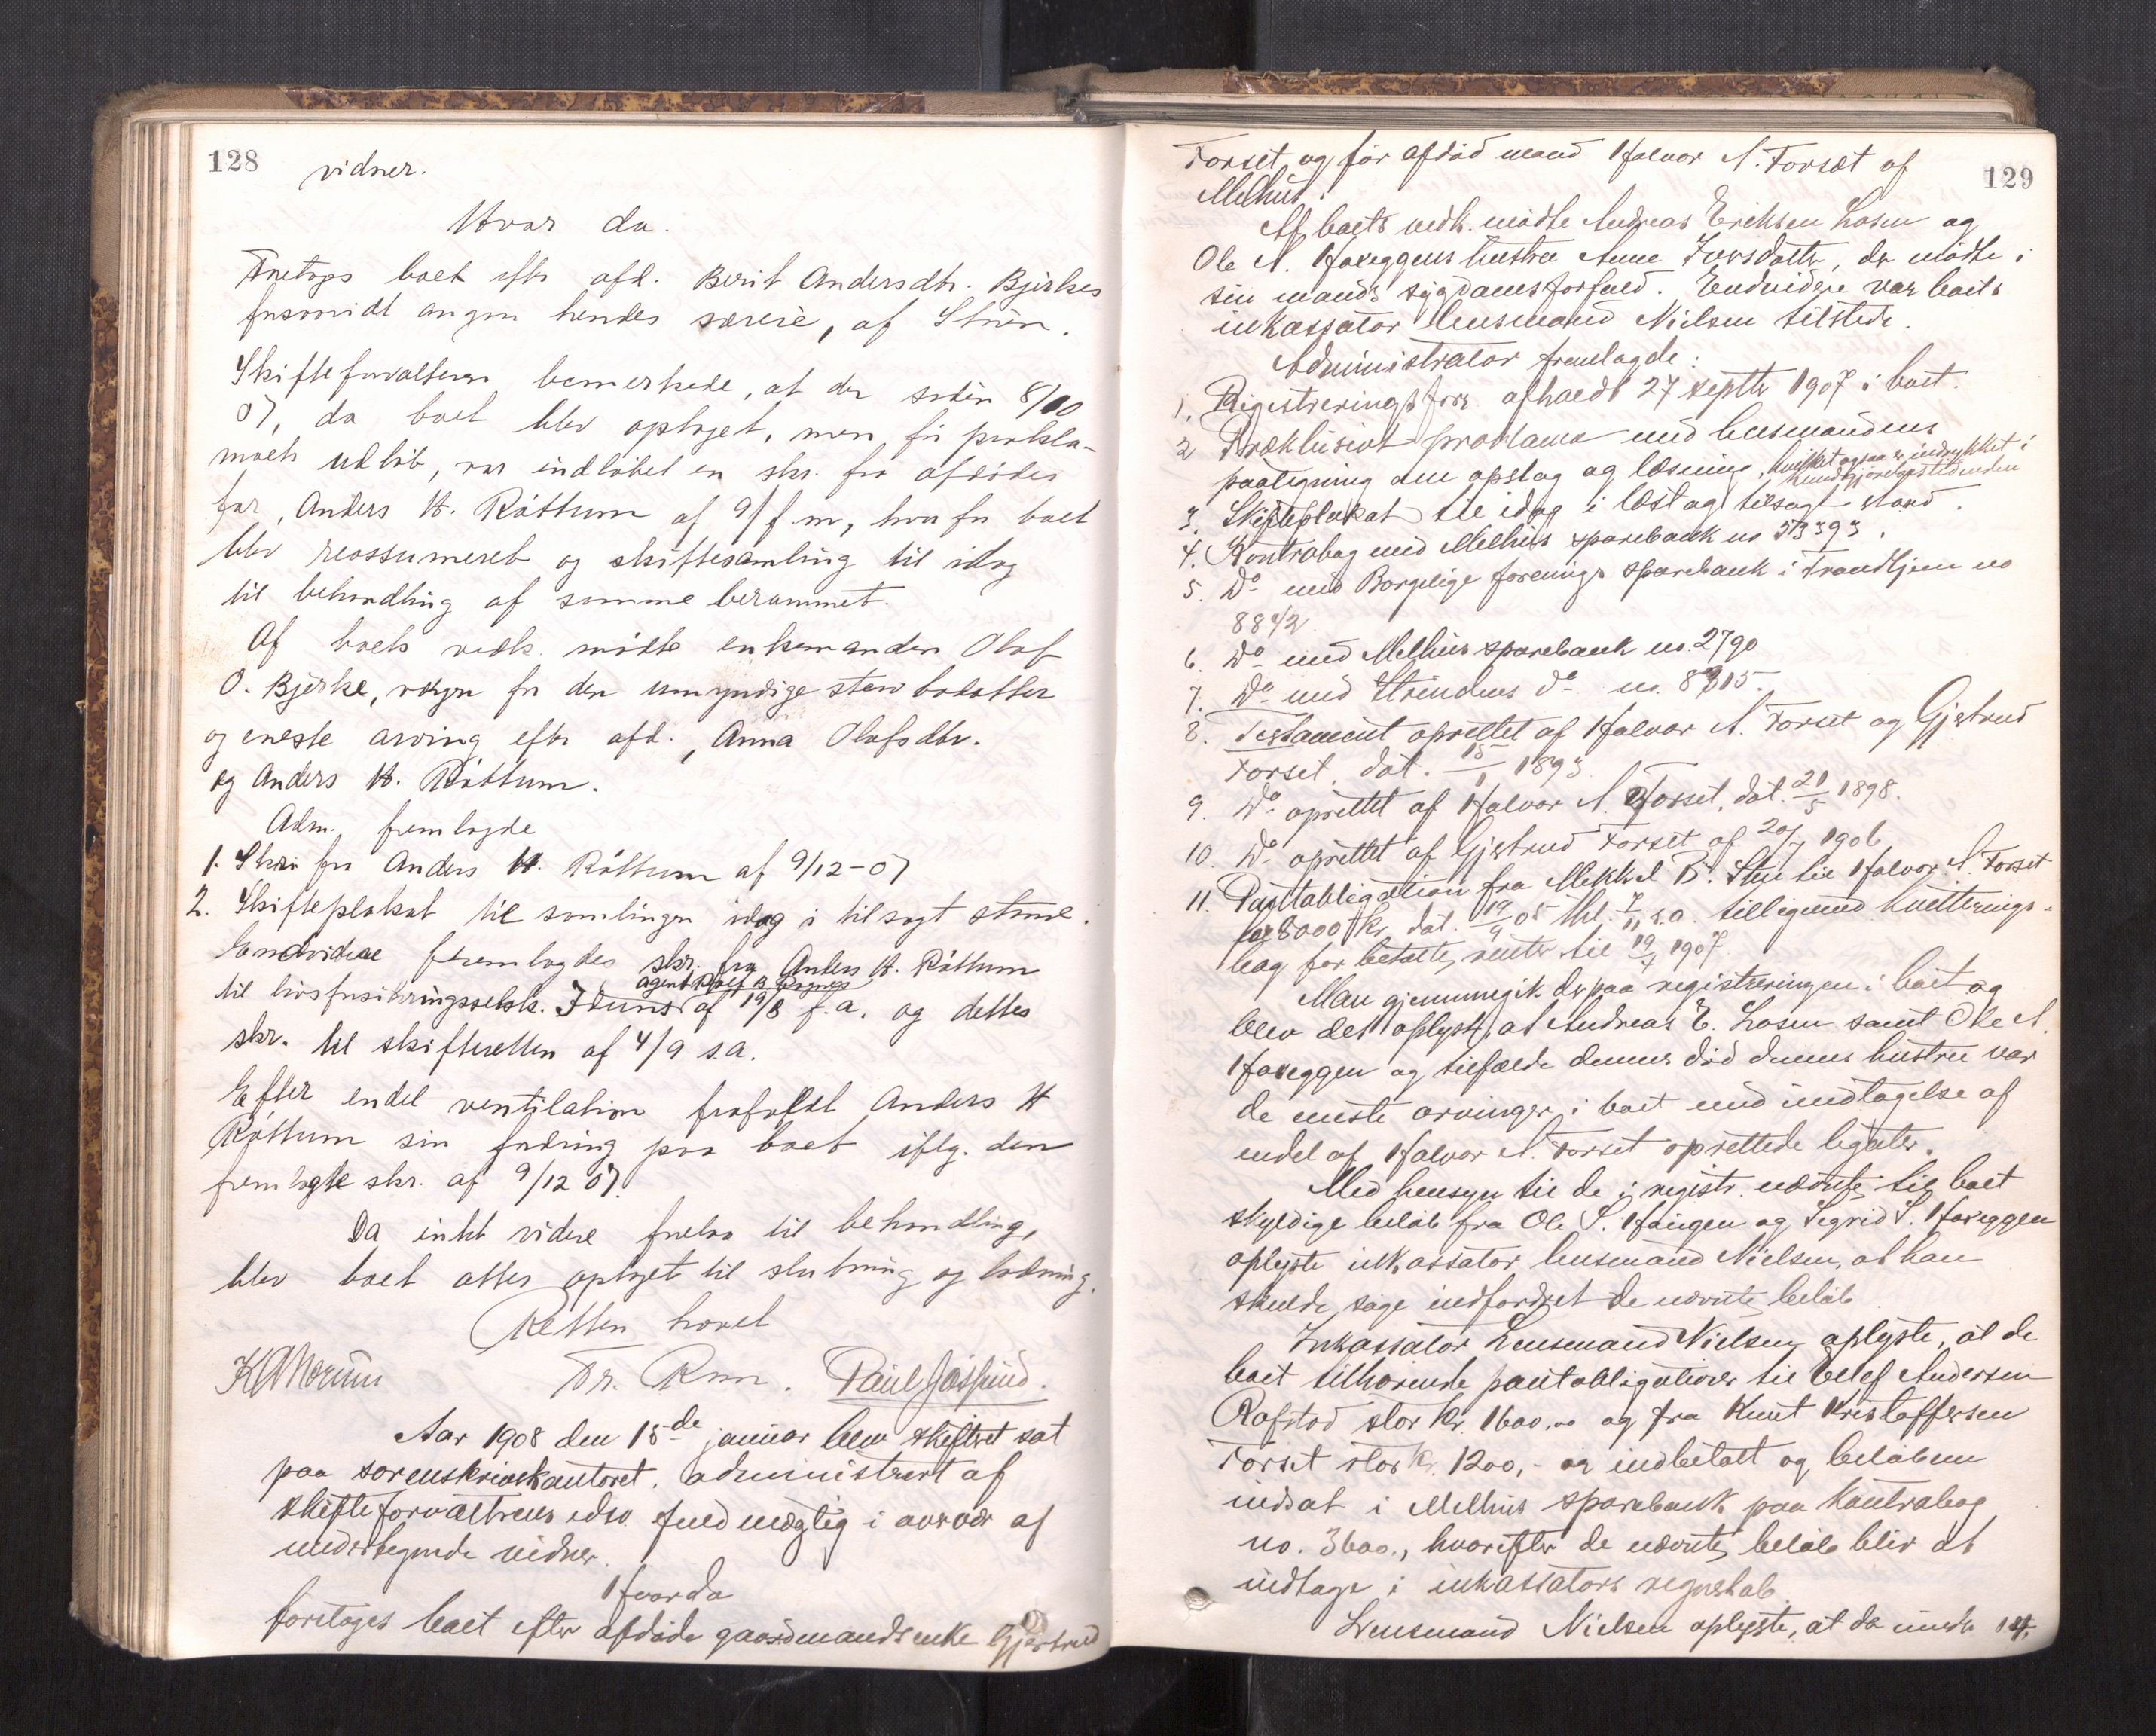 128
vidner.
Hvor da.
Foretoges boet efter afd. Berit Andersdtr. Bjerkes
forsaavidt angaar hendes særeie, af Stören.
Skifteforvalteren bemerkede, at der siden 8/10
07, da boet blev optaget, men før prokla-
maets udløb, var indløbet en skr. fra afdødes
far, Anders H. Röttum af 9/ f.m, hvorfor boet
blev reassumeret og skiftesamling til idag
til behandling af samme berammet.
Af boets vedk. mødte enkemanden Olaf
O. Bjerke, værge for den umyndige
og eneste arving efter afd., Anna Olafsdtr.
og Anders H. Röttum.
Adm. fremlagde
1. Skr. fra Anders H. Röttum af 9/12-07
2. Skifteplakat til samlingen idag i tilsagt stand.
Endvidere fremlagdes skr. fra Anders H. Röttum
agent
til livsforsikringsselsk. Iduns af 19/8 f.a. og dettes
skr. til skifteretten af 4/9 s.a.
Efter endel ventilation frafaldt Anders H
Röttum sin fordring paa boet iflg. den
fremlagte skr. af 9/12 07.
Da intet videre forelaa til behandling,
blev boet atter optaget til slutning og lodning.
Retten hævet
Fr. Rmm. Paul Jässund.
Aar 1908 den 15de januar blev skifteret sat
paa sorenskriverkontoret, administrert af
skifteforvalterens edsv. fuldmægtig i overvær af
undertegnede vidner.
Hvorda
foretoges boet efter afdøde gaardmandsenke Gjertrud
129
Forset, og før afdød mand Halvor A. Forset af
Melhus.
Af boets vedk. mødte Andreas Eriksen Losen og
Ole A. Hareggens hustru Anne Iversdatter, der mødte i
sin mands sygdomsforfald. Endvidere var boets
inkassator lensmand Nielsen tilstede.
Administrator fremlagde:
1. Registreringsforr. afholdt 27 septbr 1907 i boet.
2 Præklusivt proklama med lensmandens
paategning om opslag og læsning, hvilket ogsaa er indrykket i
kundgjørelsestidenden
3. Skifteplakat til idag i læst og tilsagt stand.
4. Kontrabog med Melhus sparebank no
5. Do med Borgelige forenings sparebank i Trondhjem no
8842
6. Do med Melhus sparebank no. 2790
7. Do med Strindens do no. 8815.
8. Testament oprettet af Halvor A. Forset og Gjertrud
Forset, dat. 15/1 1893
9. Do oprettet af Halvor A. Forset, dat. 21/5 1898.
10. Do oprettet af Gjertrud Forset af 20/7 1906
11. Pantobligation fra Mikkel B. Stii til Halvor A. Forset
for 8000 Kr, dat. 19/4 05 thl. 7/11 s.a. tilligemed kvitterings-
bog for betalte renter til 19/4 1907.
Man gjennemgik derpaa registreringen i boet og
blev det oplyst, at Andreas E. Losen samt Ole A.
Hareggen og tilfælde dennes død dennes hustru var
de eneste arvinger i boet med undtagelse af
endel af Halvor A. Forset oprettede legater.
Med hensyn til de i registr. nævnte til boet
skyldige beløb fra Ole S. Haugen og Sigrid S. Hareggen
oplyste inkassator lensmand Nielsen, at han
skulde søge indfordret de nævnte beløb
Inkassator Lensmand Nielsen oplyste, at de
boet tilhørende pantobligationer til Ellef Andersen
Rofstad stor Kr. 1600,00 og fra Knut Kristoffersen
Forset stor kr. 1200,- er indbetalt og beløbene
indsat i Melhus sparebank paa kontrabog
no. 3600., hvorefter de nævnte beløb blir at
indtage i inkassators regnskab.
Lensmand Nielsen oplyste, at da